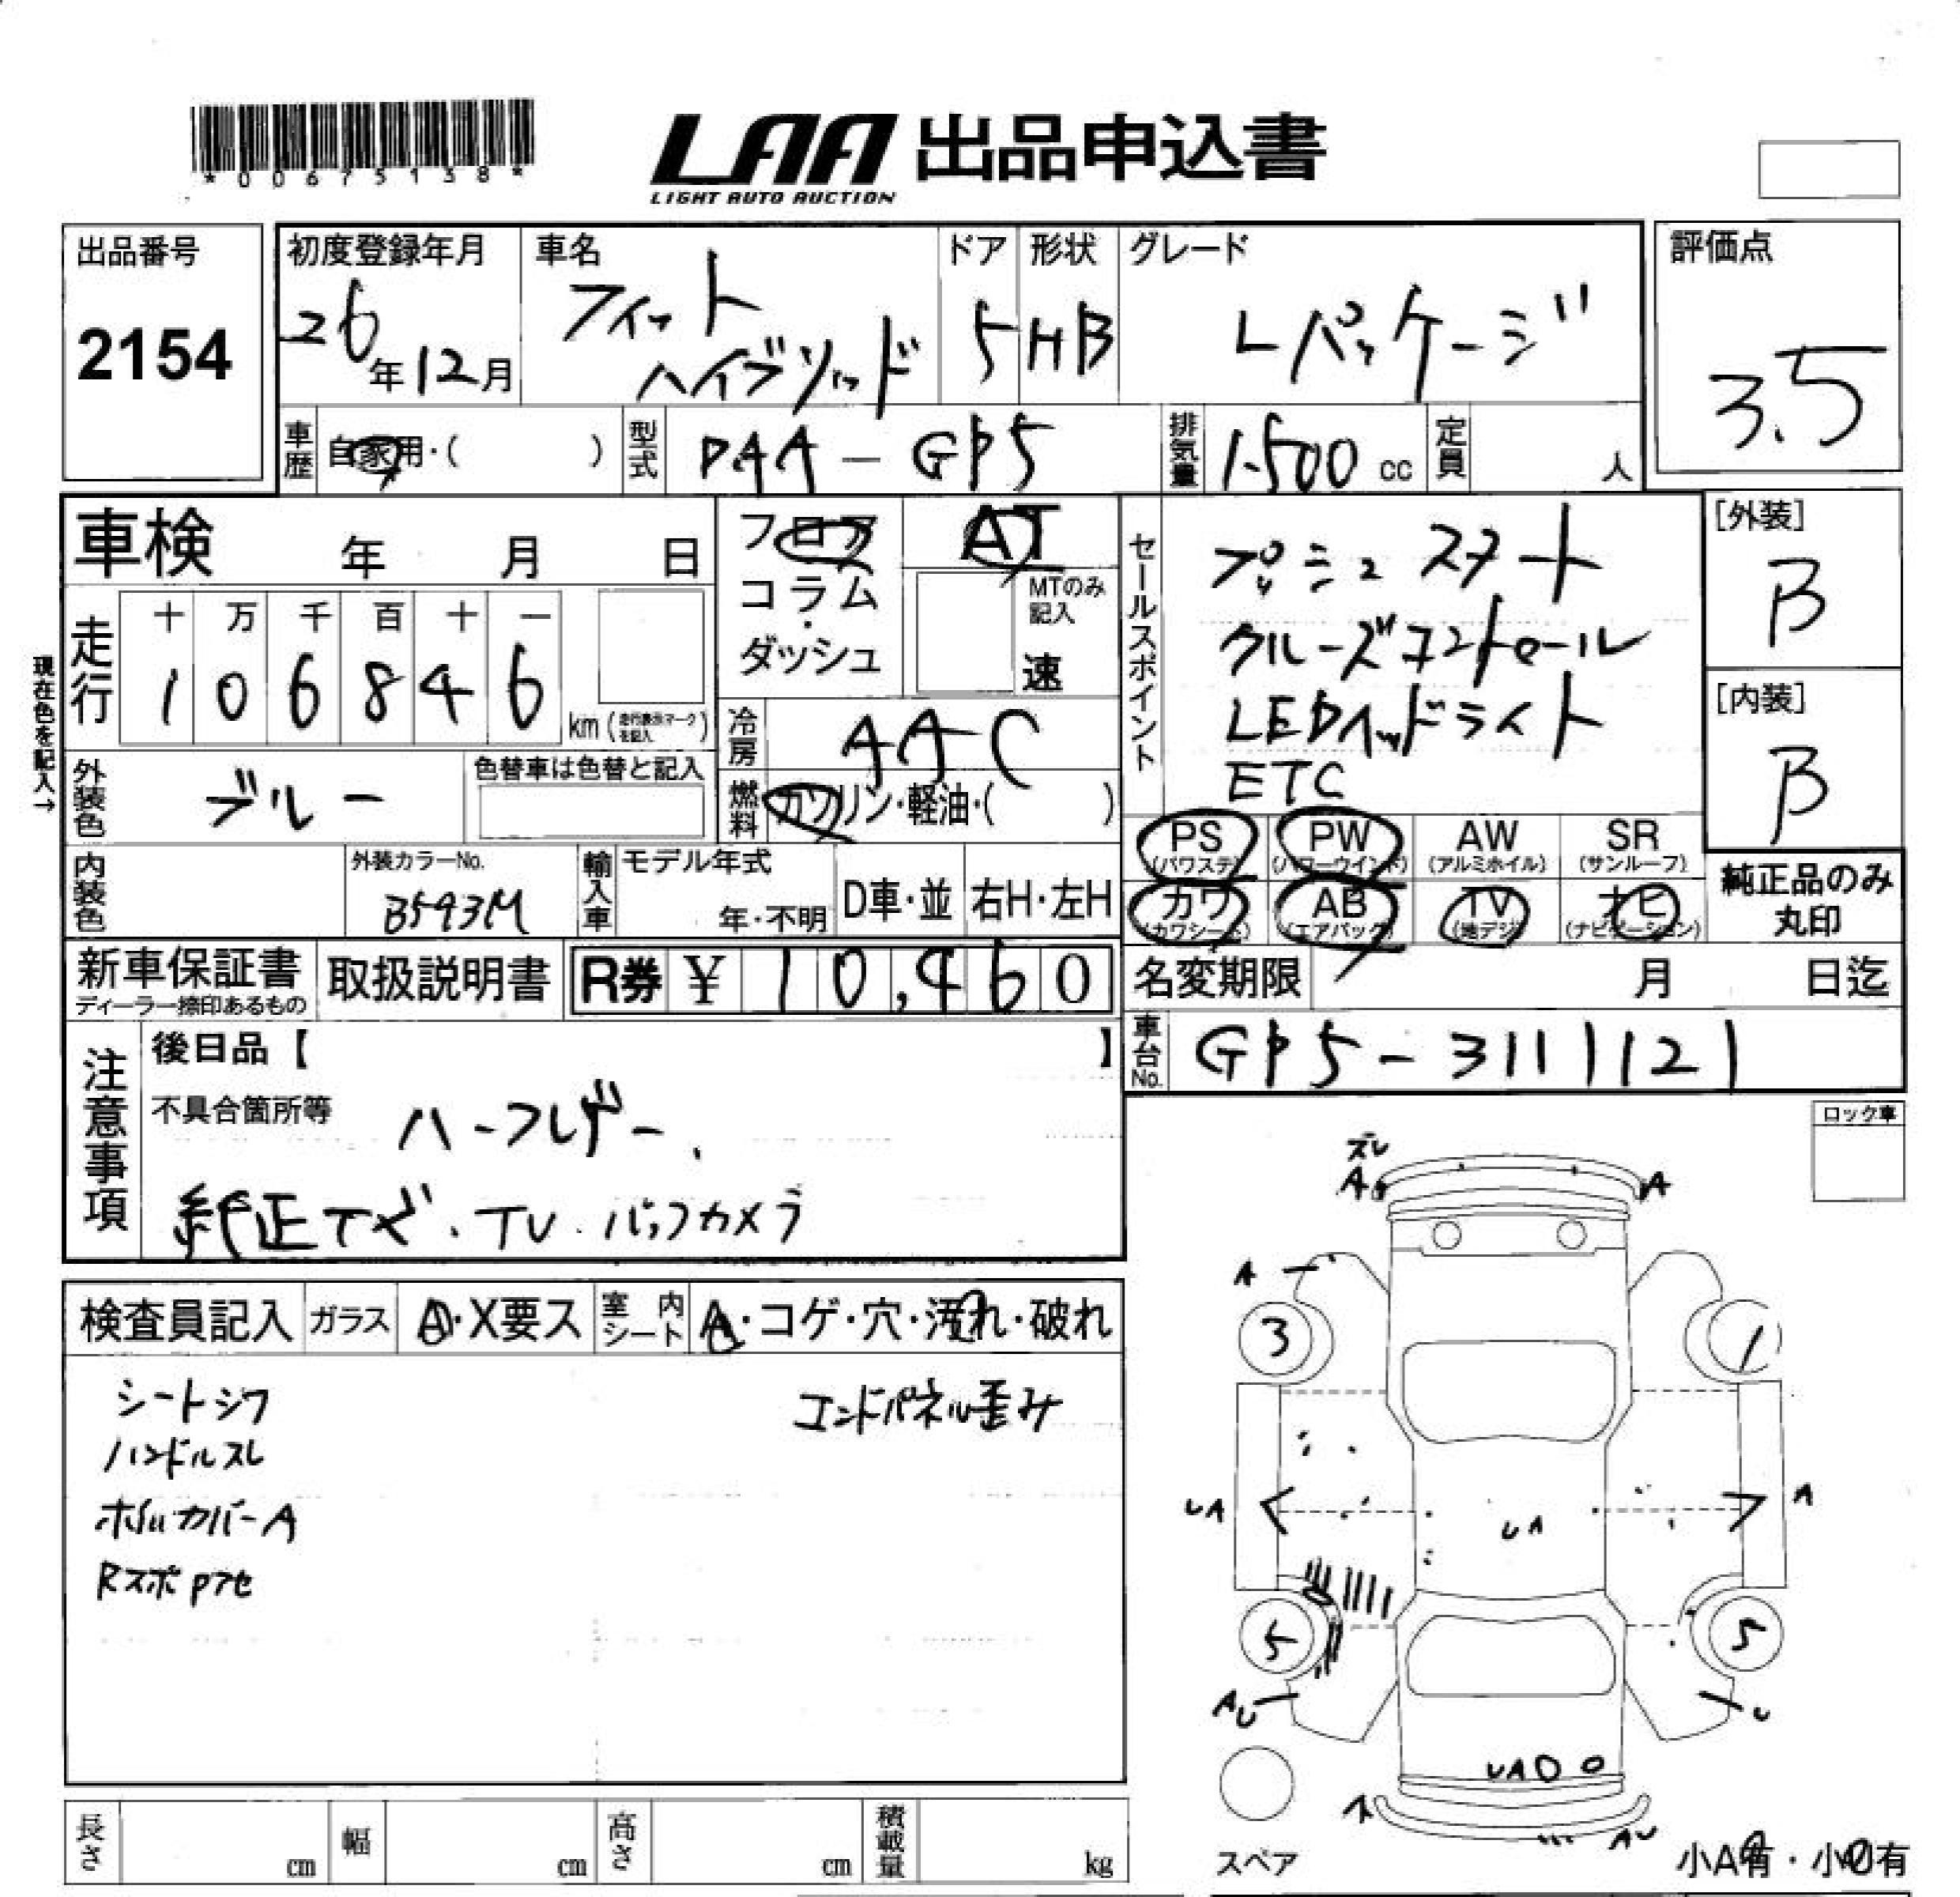 *00675138*
LAA 出品申込書
LIGHT AUTO AUCTION
出品番号
2154
初度登録年月
26年12月
車名
フィット
ハイブリッド
ドア
5
形状
HB
グレード
Lパッケージ
評価点
3.5
車歴
自家用・( )
型式
DAA-GP5
排気量
1500 cc
定員
人
車検 年 月 日
フロア
コラム
・
ダッシュ
AT
MTのみ
記入
速
現在色を記入→
走行
十 万 千 百 十 一
1 0 6 8 4 6
km (走行表示マークを記入)
冷房
AAC
燃料
ガソリン・軽油・( )
外装色
ブルー
色替車は色替と記入
内装色
外装カラーNo.
B593M
輸入車
モデル年式
年・不明
D車・並
右H・左H
セールスポイント
プッシュスタート
クルーズコントロール
LEDヘッドライト
ETC
[外装]
B
[内装]
B
PS
(パワステ)
PW
(パワーウインド)
AW
(アルミホイル)
SR
(サンルーフ)
カワ
(カワシート)
AB
(エアバッグ)
TV
(地デジ)
ナビ
(ナビゲーション)
純正品のみ
丸印
新車保証書
ディーラー捺印あるもの
取扱説明書
R券 ¥ 10,460
名変期限 月 日迄
車台No.
GP5-3111121
注意事項
後日品【 】
不具合箇所等
ハーフレザー、
純正ナビ・TV・バックカメラ
ロック車
検査員記入
ガラス
A・X要ス
室内シート
A・コゲ・穴・汚れ・破れ
シートシワ
エンドパネル歪み
ハンドルスレ
ホイルカバーA
RスポPアセ
ズレ
A
A
A
3
1
UA
A
UA
5
5
AU
U
UA
ス
AU
スペア
小A有・小U有
長さ
cm
幅
cm
高さ
cm
積載量
kg